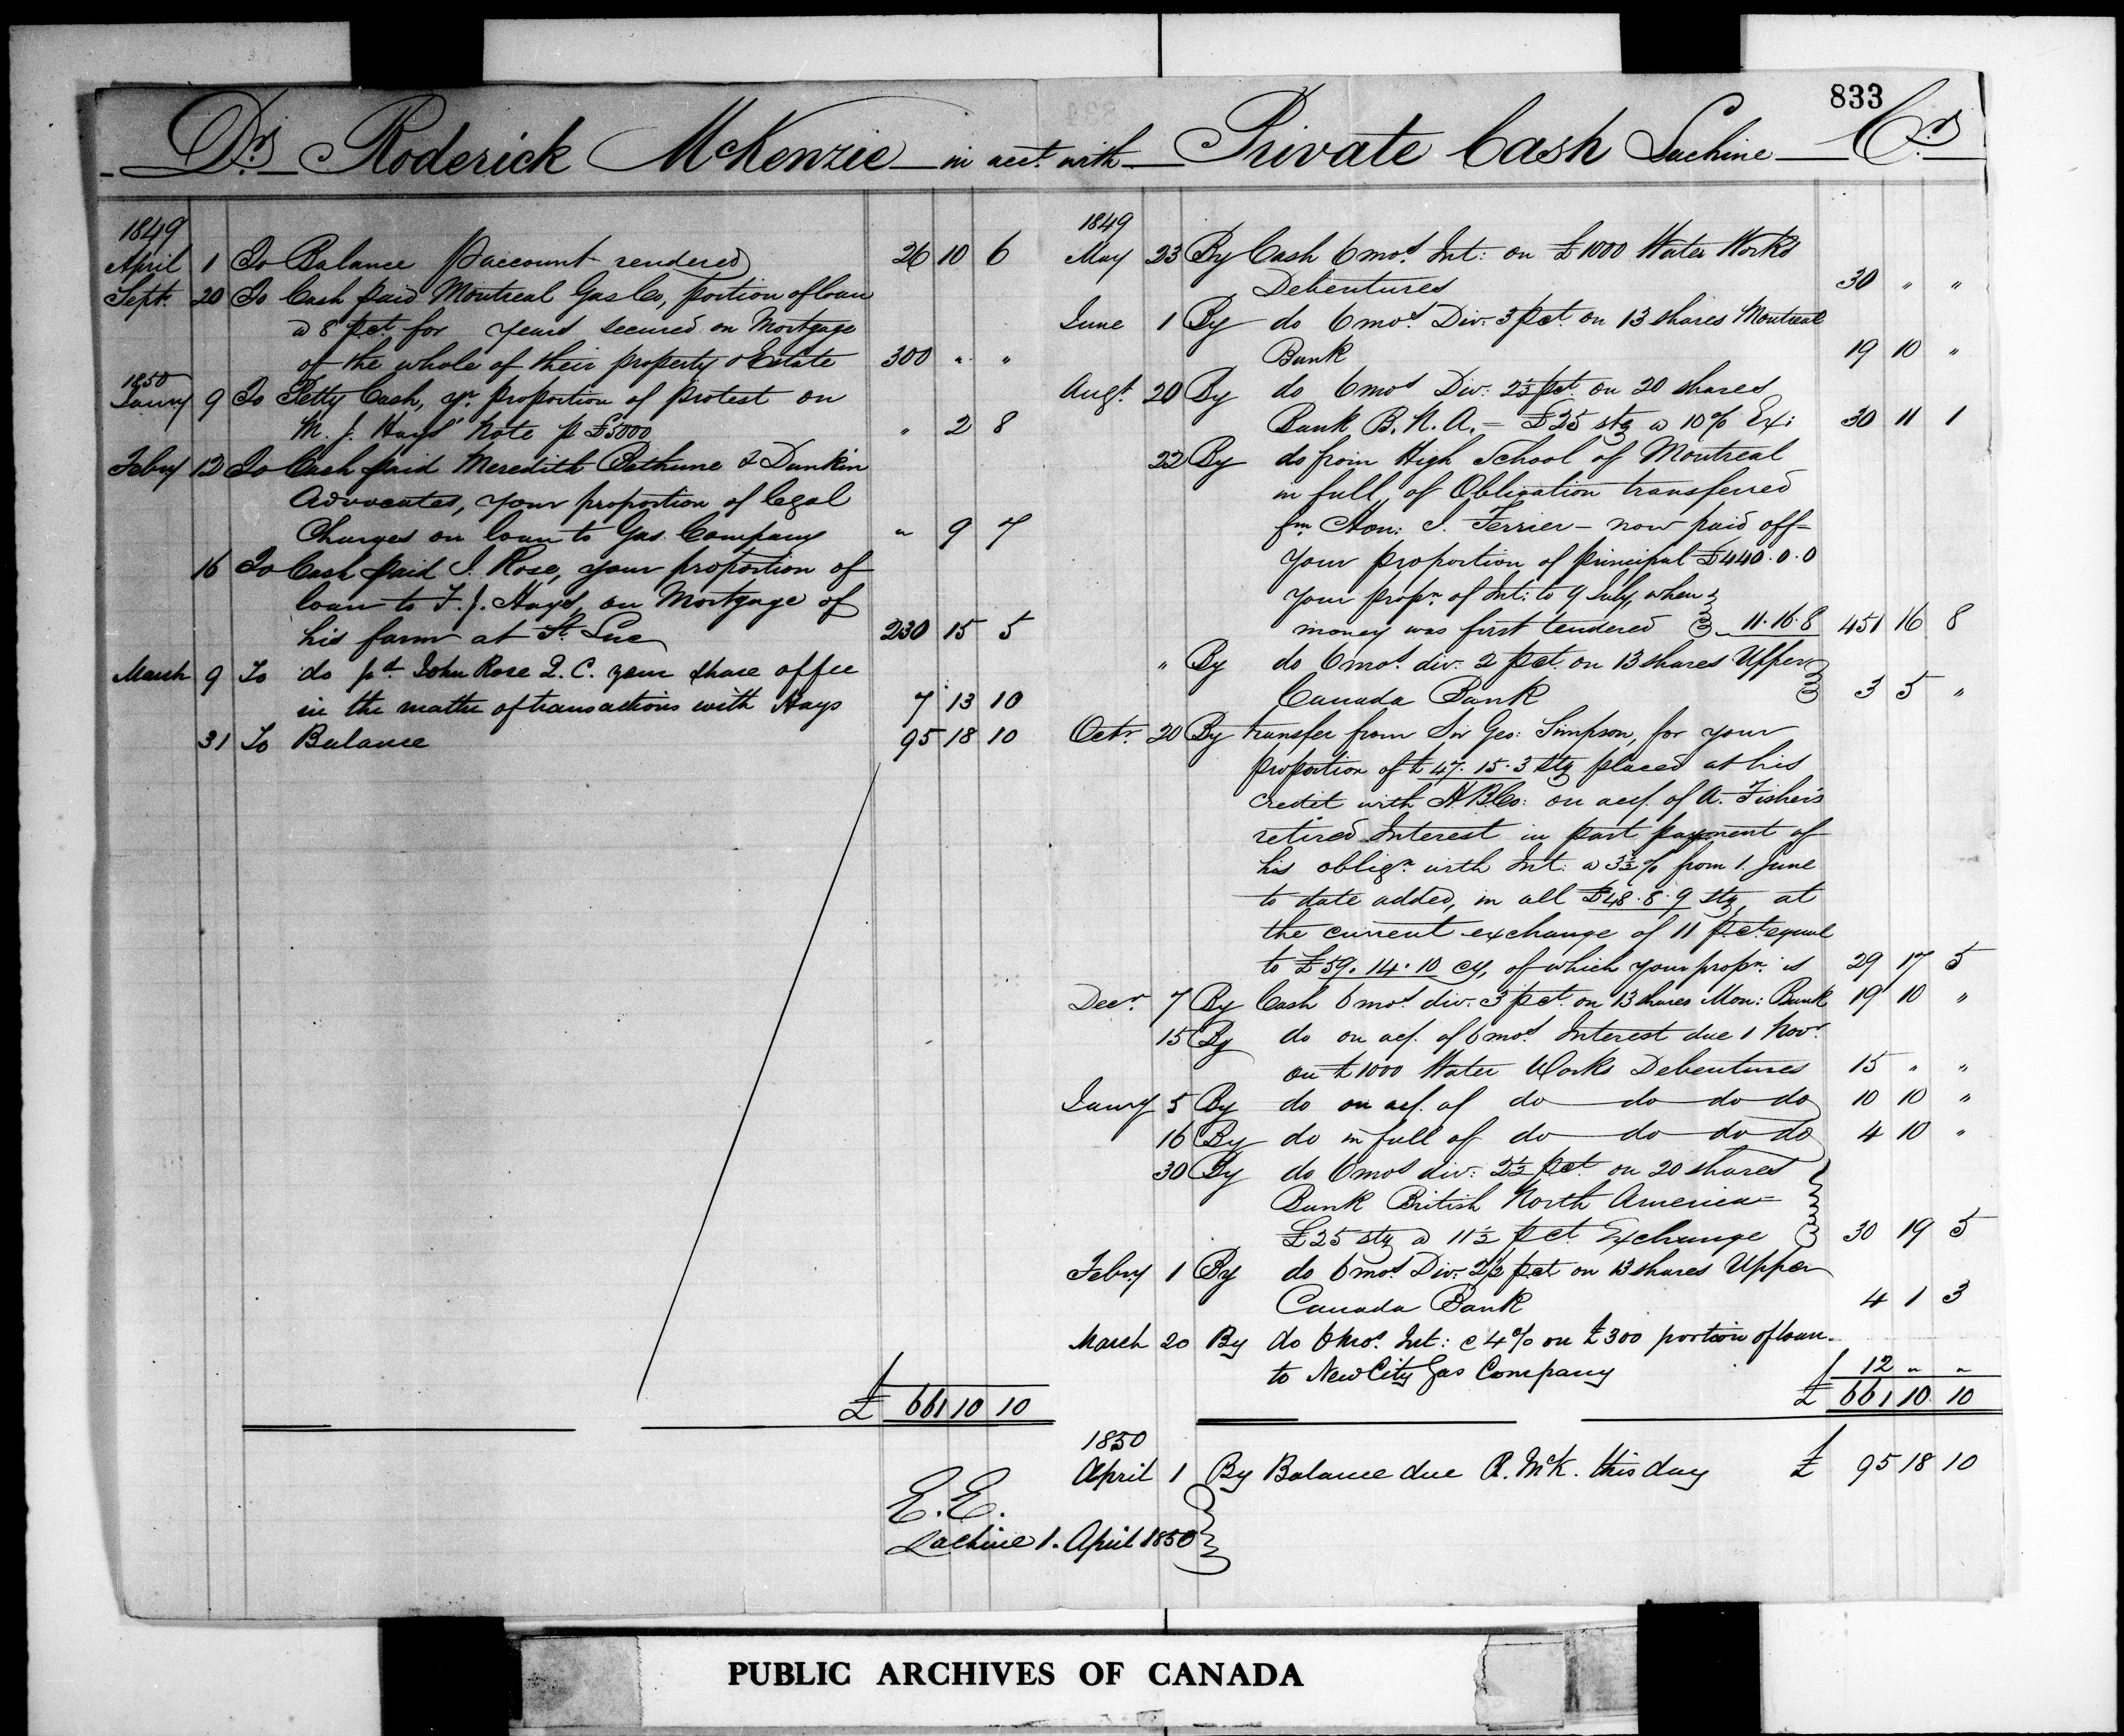 833
Dr. Roderick McKenzie in acct. with Private Cash Lachine Cr.
1849
April 1 To Balance p account rendered 26 10 6
Sept. 20 To Cash paid Montreal Gas Co, portion of loan
a 8 pct for years secured on Mortgage
of the whole of their property & Estate 300 " "
1850
Janry 9 To Petty Cash, yr. proportion of protest on
M. J. Hays' Note p £5000 " 2 8
Febry 12 To Cash paid Meredith Bethune & Dunkin
Advocates, your proportion of legal
Charges on loan to Gas Company " 9 7
16 To Cash paid J. Rose, your proportion of
loan to T. J. Hays, on Mortgage of
his farm at St. Luc 230 15 5
March 9 To do pd. John Rose Q.C. your share of fee
in the matter of transactions with Hays 7 13 10
31 To Balance 95 18 10
£ 661 10 10
1849
May 23 By Cash 6 mos. Int: on £1000 Water Works
Debentures 30 " "
June 1 By do 6 mos. Div. 3 pct. on 13 shares Montreal
Bank 19 10 "
Augt. 20 By do 6 mos Div: 2½ pct. on 20 shares
Bank B.N.A. = £25 stg a 10% Ex: 30 11 1
22 By do from High School of Montreal
in full, of Obligation transferred
fm. Hon: J. Ferrier - now paid off -
Your proportion of principal £440.0.0
Your propn. of Int: to 9 July, when
money was first tendered 11.16.8 451 16 8
" By do 6 mos. div. 2 pct. on 13 shares Upper
Canada Bank 3 5 "
Octr. 20 By transfer from Sir Geo: Simpson, for your
proportion of £47.15.3 stg placed at his
credit with H B Co: on acf. of A. Fisher's
retired Interest in part payment of
his oblign. with Int: a 3½% from 1. June
to date added, in all £48.8.9 stg, at
the current exchange of 11 pct. equal
to £59.14.10 cy, of which your propn. is 29 17 5
Decr. 7 By Cash 6 mos. div. 3 pct. on 13 shares Mon: Bank 19 10 "
15 By do on acf. of 6 mos. Interest due 1 Novr.
on £1000 Water Works Debentures 15 " "
Janry 5 By do on acf. of do do do do 10 10 "
16 By do in full of do do do do 4 10 "
30 By do 6 mos div: 2½ pct. on 20 shares
Bank British North America =
£25 stg a 11½ pct. Exchange 30 19 5
Febry 1 By do 6 mos. Div. 2½ pct on 13 shares Upper
Canada Bank 4 1 3
March 20 By do 6 mos. Int: @ 4% on £300 portion of loan
to New City Gas Company 12 " "
£ 661 10 10
1850
April 1 By Balance due R. McK. this day £ 95 18 10
E.E.
Lachine 1. April 1850
PUBLIC ARCHIVES OF CANADA